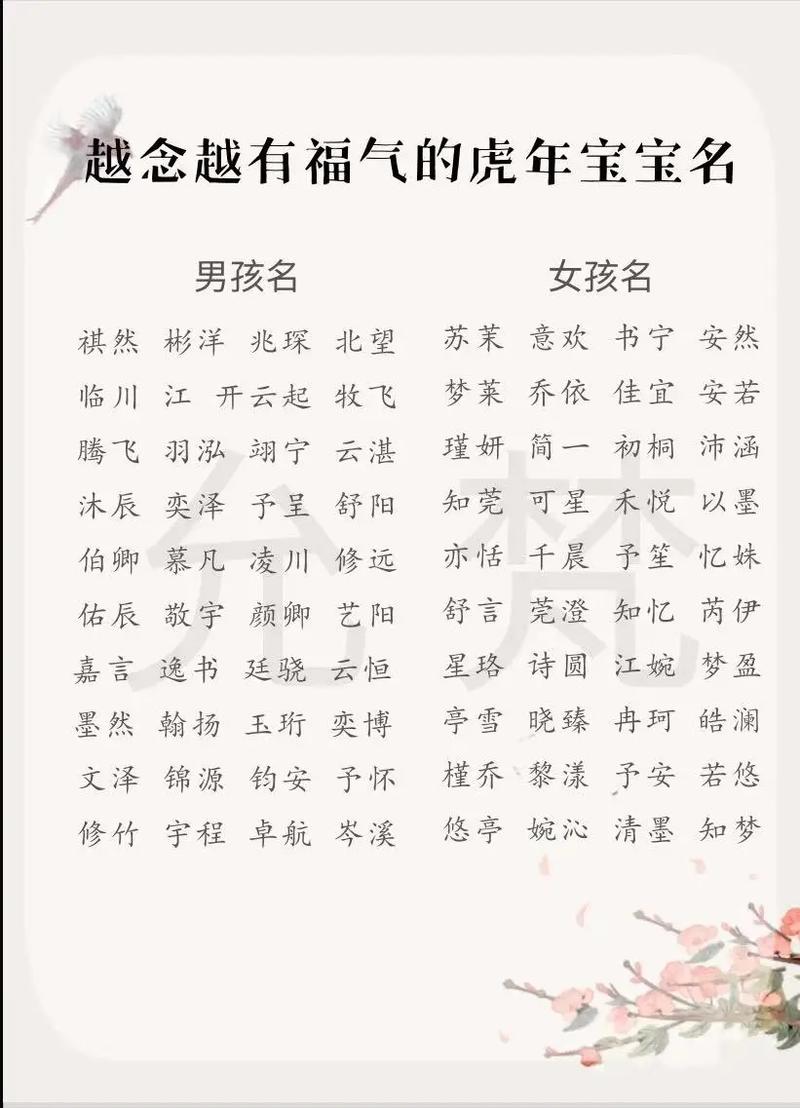 越念越有福气的虎年宝宝名
男孩名
祺然 彬洋 兆琛 北望
临川 江 开云起 牧飞
腾飞 羽泓 翊宁 云湛
沐辰 奕泽 予呈 舒阳
伯卿 慕凡 凌川 修远
佑辰 敬宇 颜卿 艺阳
嘉言 逸书 廷骁 云恒
墨然 翰扬 玉珩 奕博
文泽 锦源 钧安 予怀
修竹 宇程 卓航 岑溪
女孩名
苏茉 意欢 书宁 安然
梦莱 乔依 佳宜 安若
瑾妍 简一 初桐 沛涵
知莞 可星 禾悦 以墨
亦恬 千晨 予笙 忆姝
舒言 莞澄 知忆 芮伊
星珞 诗圆 江婉 梦盈
亭雪 晓臻 冉珂 皓澜
槿乔 黎漾 予安 若悠
悠亭 婉沁 清墨 知梦
允梵